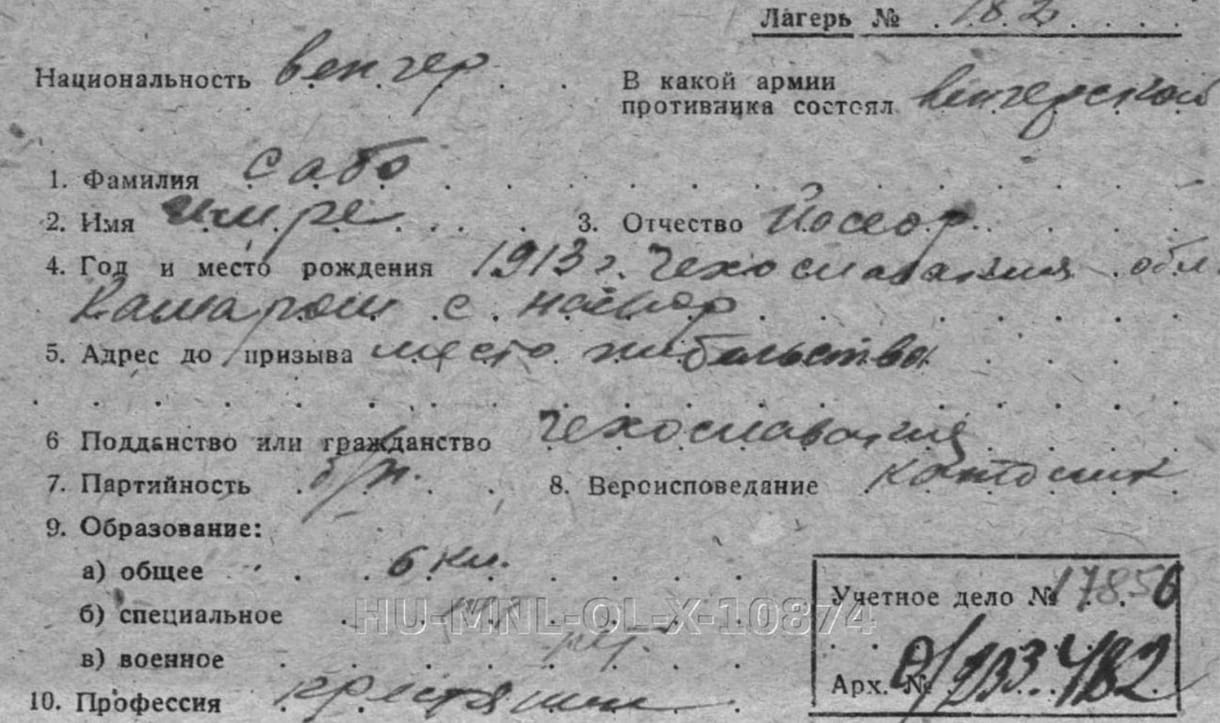 Лагерь № 182
Национальность венгер
В какой армии противника состоял венгерской
1. Фамилия Сабо
2. Имя Имре 3. Отчество Йосеф
4. Год и место рождения 1913 г. Чехославакия обл.
Камаром с.
5. Адрес до призыва место жительства
6 Подданство или гражданство Чехославакия
7. Партийность б/п. 8. Вероисповедание католик
9. Образование:
а) общее 6 кл.
б) специальное нет
в) военное нет.
Учетное дело № 17856
Арх. №
10. Профессия крестянин
HU-MNL-OL-X-10874